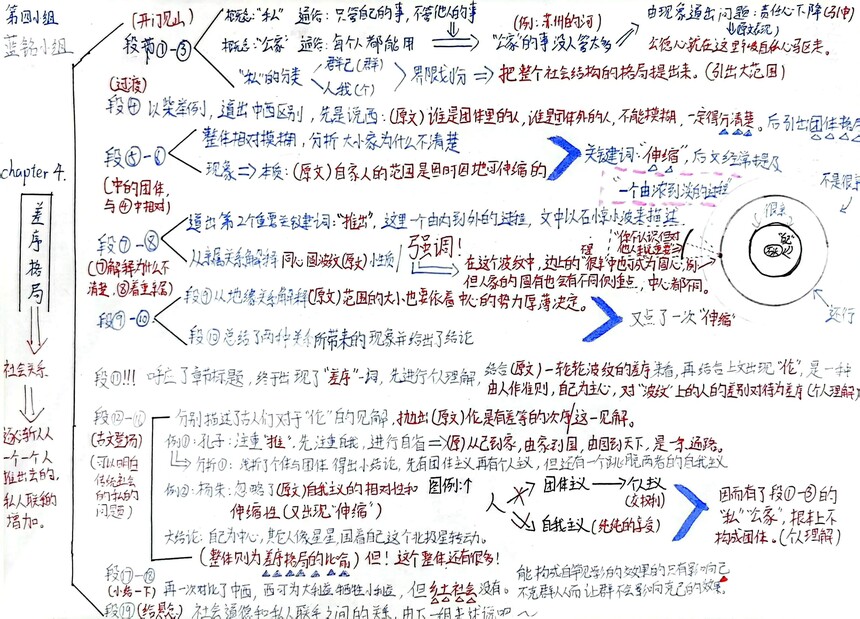 第四小组
蓝铭小组
chapter 4.
差序格局
社会关系
逐渐从
一个一个人
推出去的,
私人联系的
增加。
(开门见山)
段落①-③
概念:"私" 通俗:只管自己的事,不管他人的事
概念:"公家" 通俗:每个人都能用
(例:苏州的河)
"公家"的事没人管太多
由现象道出问题:责任心下降(引申)
公德心就在这里被自私心驱走。
"私"的分类
群己(群)
人我(个)
界限划分 ⇒ 把整个社会结构的格局提出来。(引出大范围)
(过渡)
段④ 以柴举例,道出中西区别,先是说西:(原文)谁是团体里的人,谁是团体外的人,不能模糊,一定得分清楚。后引出团体格局
段⑤-⑥
(中的团体,
与④中相对)
整体相对模糊,分析大小家为什么不清楚
现象⇒本质:(原文)自家人的范围是因时因地可伸缩的
关键词:"伸缩",后文经常提及
"一个由浓到淡的过程"
段⑦-⑧
(⑦解释为什么不
清楚,⑧着重亲属)
道出第2个重要关键词:"推出",这里一个由内到外的过程,文中以石子掠小波来描述
从亲属关系解释 同心圆波纹(原文)性质
强调!
在这个波纹中,边上的"很亲"中也可成为圆心,例
但人家的圆肯也会有不同侧重点,中心都不同。
很亲
还行
段⑨-⑩
段⑨从地缘关系解释(原文)范围的大小也要依着中心的势力厚薄决定。
段⑩总结了两种关系所带来的现象并给出了结论
又点了一次"伸缩"
段⑪!!! 呼应了章节标题,终于出现了"差序"一词,先进行个人理解,
结合(原文)一轮轮波纹的差序来看,再结合上文出现"伦",是一种
由人作准则,自己为主心,对"波纹"上的人的差别对待为差序(个人理解)
(古文登场)
(可以明白
传统社会
的私的
问题)
分别描述了古人们对于"伦"的见解,抛出(原文)伦是有差等的次序这一见解。
例①:孔子:注重"推",先注重自我,进行自省⇒(原)从己到家,由家到国,由国到天下,是一条通路。
分析①:浅析了个体与团体 得出小结论,先有团体主义再有个人主义,但还有一个跳脱两者的自我主义
例②:杨朱:忽略了(原文)自我主义的相对性和
伸缩性(又出现"伸缩")
图例:↑
人
团体主义 → 个人主义
自我主义
因而有了段①-③的
"私""公家",根本上不
构成团体。(个人理解)
大结论:自己为中心,其它人像星星,围着自己这个北极星转动。
(整体则为差序格局的比喻)但!这个整体还有很多!
(小结一下)
再一次对比了中西,西可为大利益牺牲小利益,但乡土社会没有。
段⑲(给悬念) 社会道德和私人联系之间的关系,由下一组来述说吧~